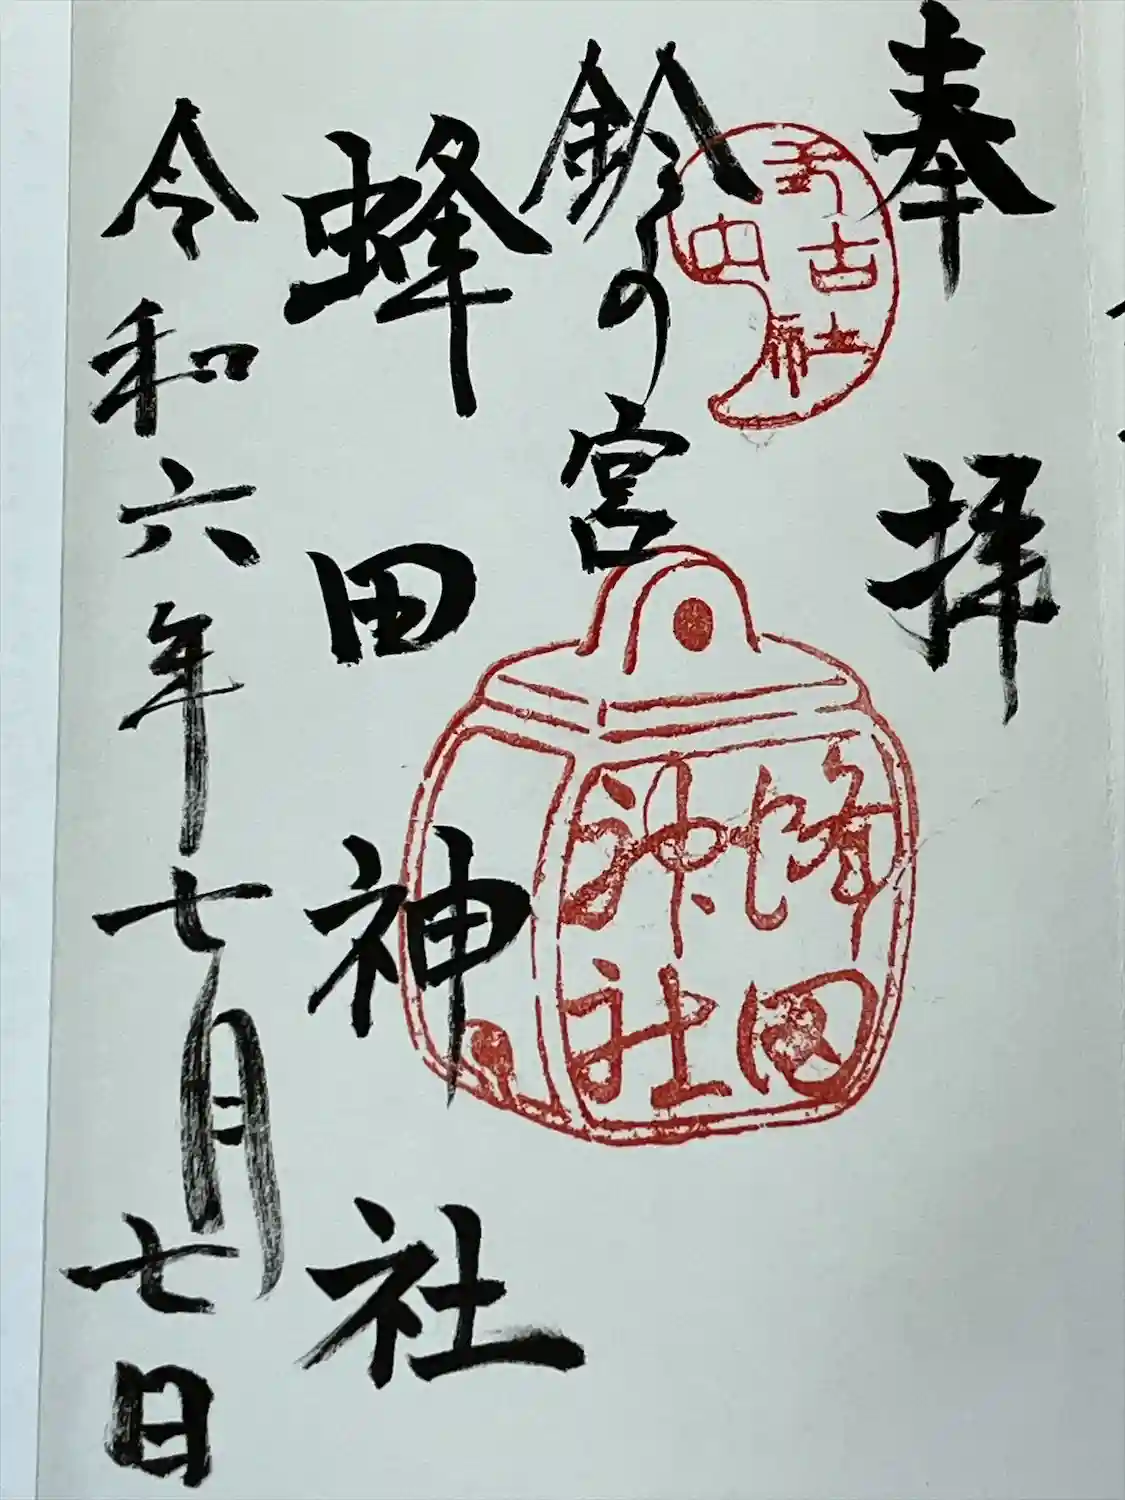 奉拝
鈴の宮
蜂田神社
令和六年七月七日
式内
古社
蜂田
神社